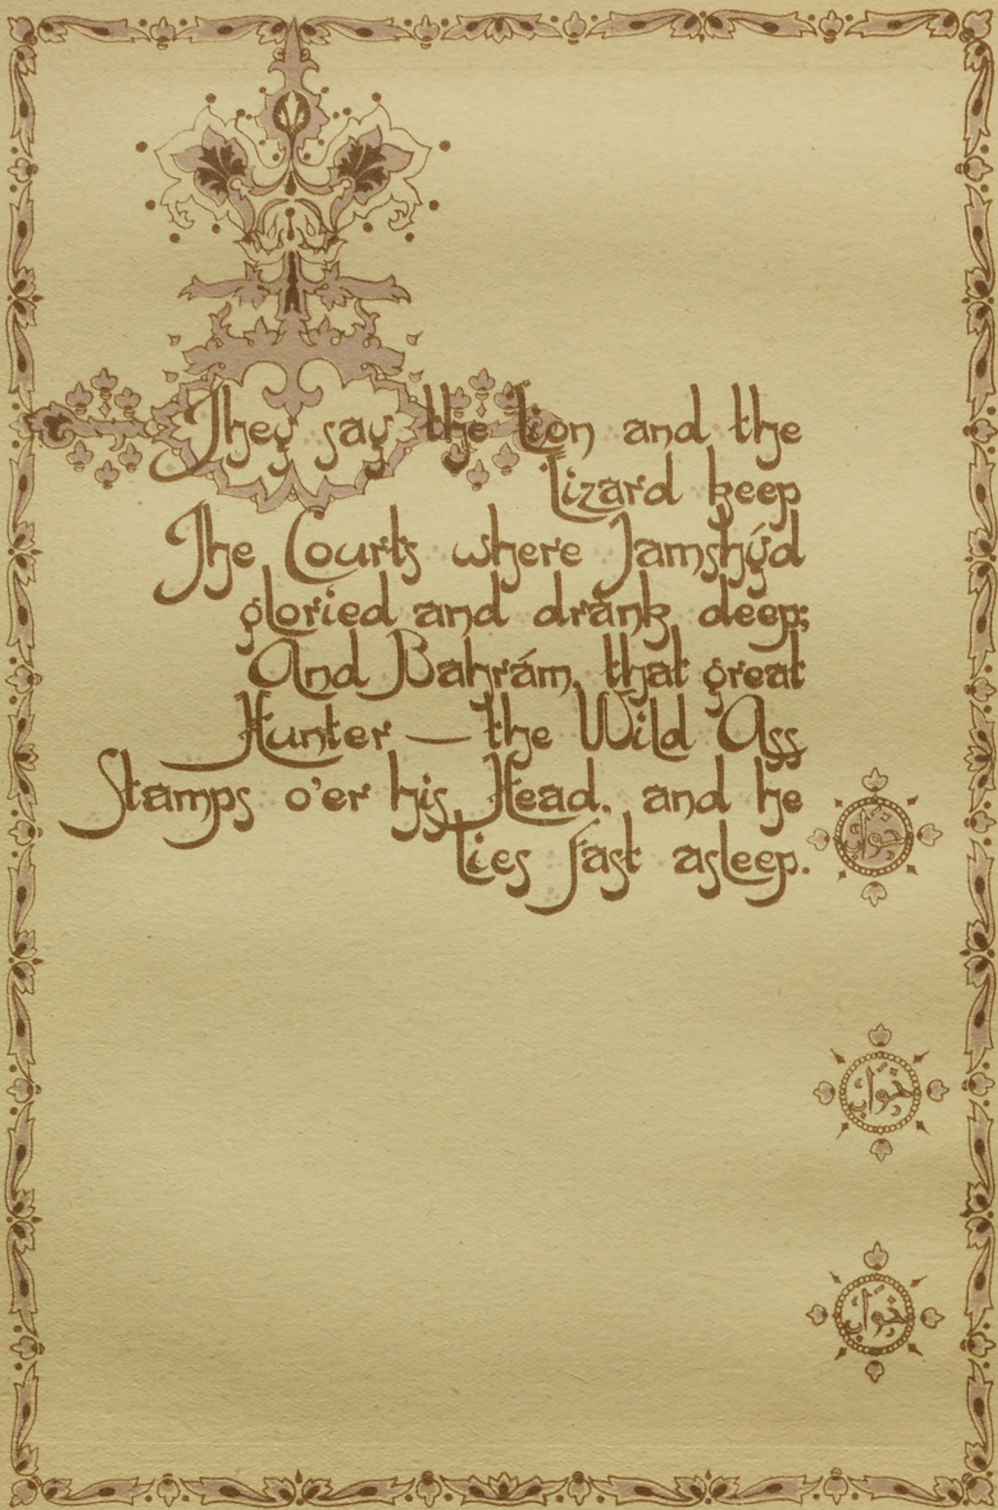 They say the Lion and the
Lizard keep
The Courts where Jamshýd
gloried and drank deep;
And Bahrám, that great
Hunter — the Wild Ass
Stamps o'er his Head, and he
Lies fast asleep.